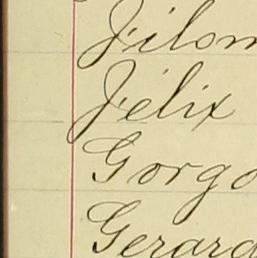 Filom
Felix
Gorgo
Gerard